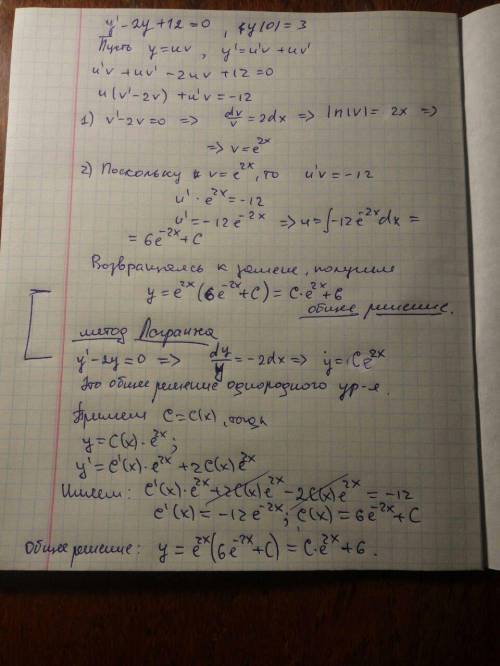 y' - 2y + 12 = 0, y(0) = 3
Пусть y = uv, y' = u'v + uv'
u'v + uv' - 2uv + 12 = 0
u(v' - 2v) + u'v = -12
1) v' - 2v = 0 => dv/v = 2dx => ln|v| = 2x =>
=> v = e^{2x}
2) Поскольку v = e^{2x}, то u'v = -12
u' · e^{2x} = -12
u' = -12e^{-2x} => u = ∫-12e^{-2x}dx =
= 6e^{-2x} + C
Возвращаясь к замене, получим
y = e^{2x}(6e^{-2x} + C) = C·e^{2x} + 6
общее решение.
метод Лагранжа
y' - 2y = 0 => dy/y = -2dx => y = Ce^{2x}
Это общее решение однородного ур-я.
Примем C = C(x), тогда
y = C(x)·e^{2x};
y' = C'(x)·e^{2x} + 2C(x)e^{2x}
Имеем: C'(x)·e^{2x} + 2C(x)e^{2x} - 2C(x)e^{2x} = -12
C'(x) = -12e^{-2x}; C(x) = 6e^{-2x} + C
Общее решение: y = e^{2x}(6e^{-2x} + C) = C·e^{2x} + 6.